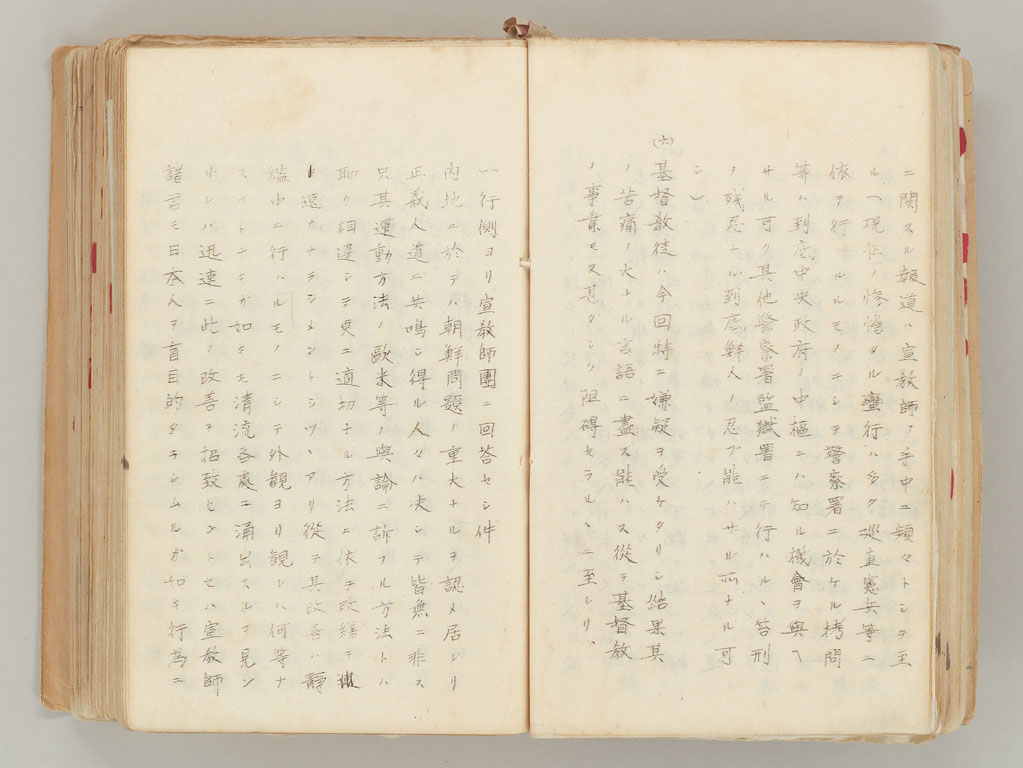 ニ関スル報道ハ宣教師ノ手中ニ頻々トシテ至
ル(現在ノ惨憺タル蛮行ハ多ク巡査憲兵等ニ
依テ行ハルルモノニシテ警察署ニ於ケル拷問
等ハ到底中央政府ノ中樞ニハ知ル機會ヲ與ヘ
サル可ク其他警察署監獄署ニテ行ハルヽ笞刑
ノ残忍ニハ到底鮮人ノ忍ブ能ハサル所ナル可
シ)
(六)基督教徒ハ今回特ニ嫌疑ヲ受ケタリシ結果其
ノ苦痛ノ大ナル言語ニ盡ス能ハス従テ基督教
ノ事業モ又甚シク阻碍セラルヽニ至レリ、
一行側ヨリ宣教師團ニ回答セシ件
内地ニ於テハ朝鮮問題ノ重大ナルヲ認メ居レリ
正義人道ニ共鳴シ得ル人々ハ決シテ皆無ニ非ス
只其運動方法ノ歐米等ノ輿論ニ訴フル方法トハ
聊カ相違シテ更ニ適切ナル方法ニ依テ改繕ヲ
ト遠カナラシメントシツヽアリ從テ其改善ハ靜
謐中ニ行ハルモノニシテ外観ヨリ観レハ何等ナ
スコトナキガ如キモ清流各處ニ涌出スルヲ見ン
申シハ迅速ニ此ノ改善ヲ招致セントセハ宣教師
諸君モ日本人ヲ盲目的タラシムルガ如キ行為ニ